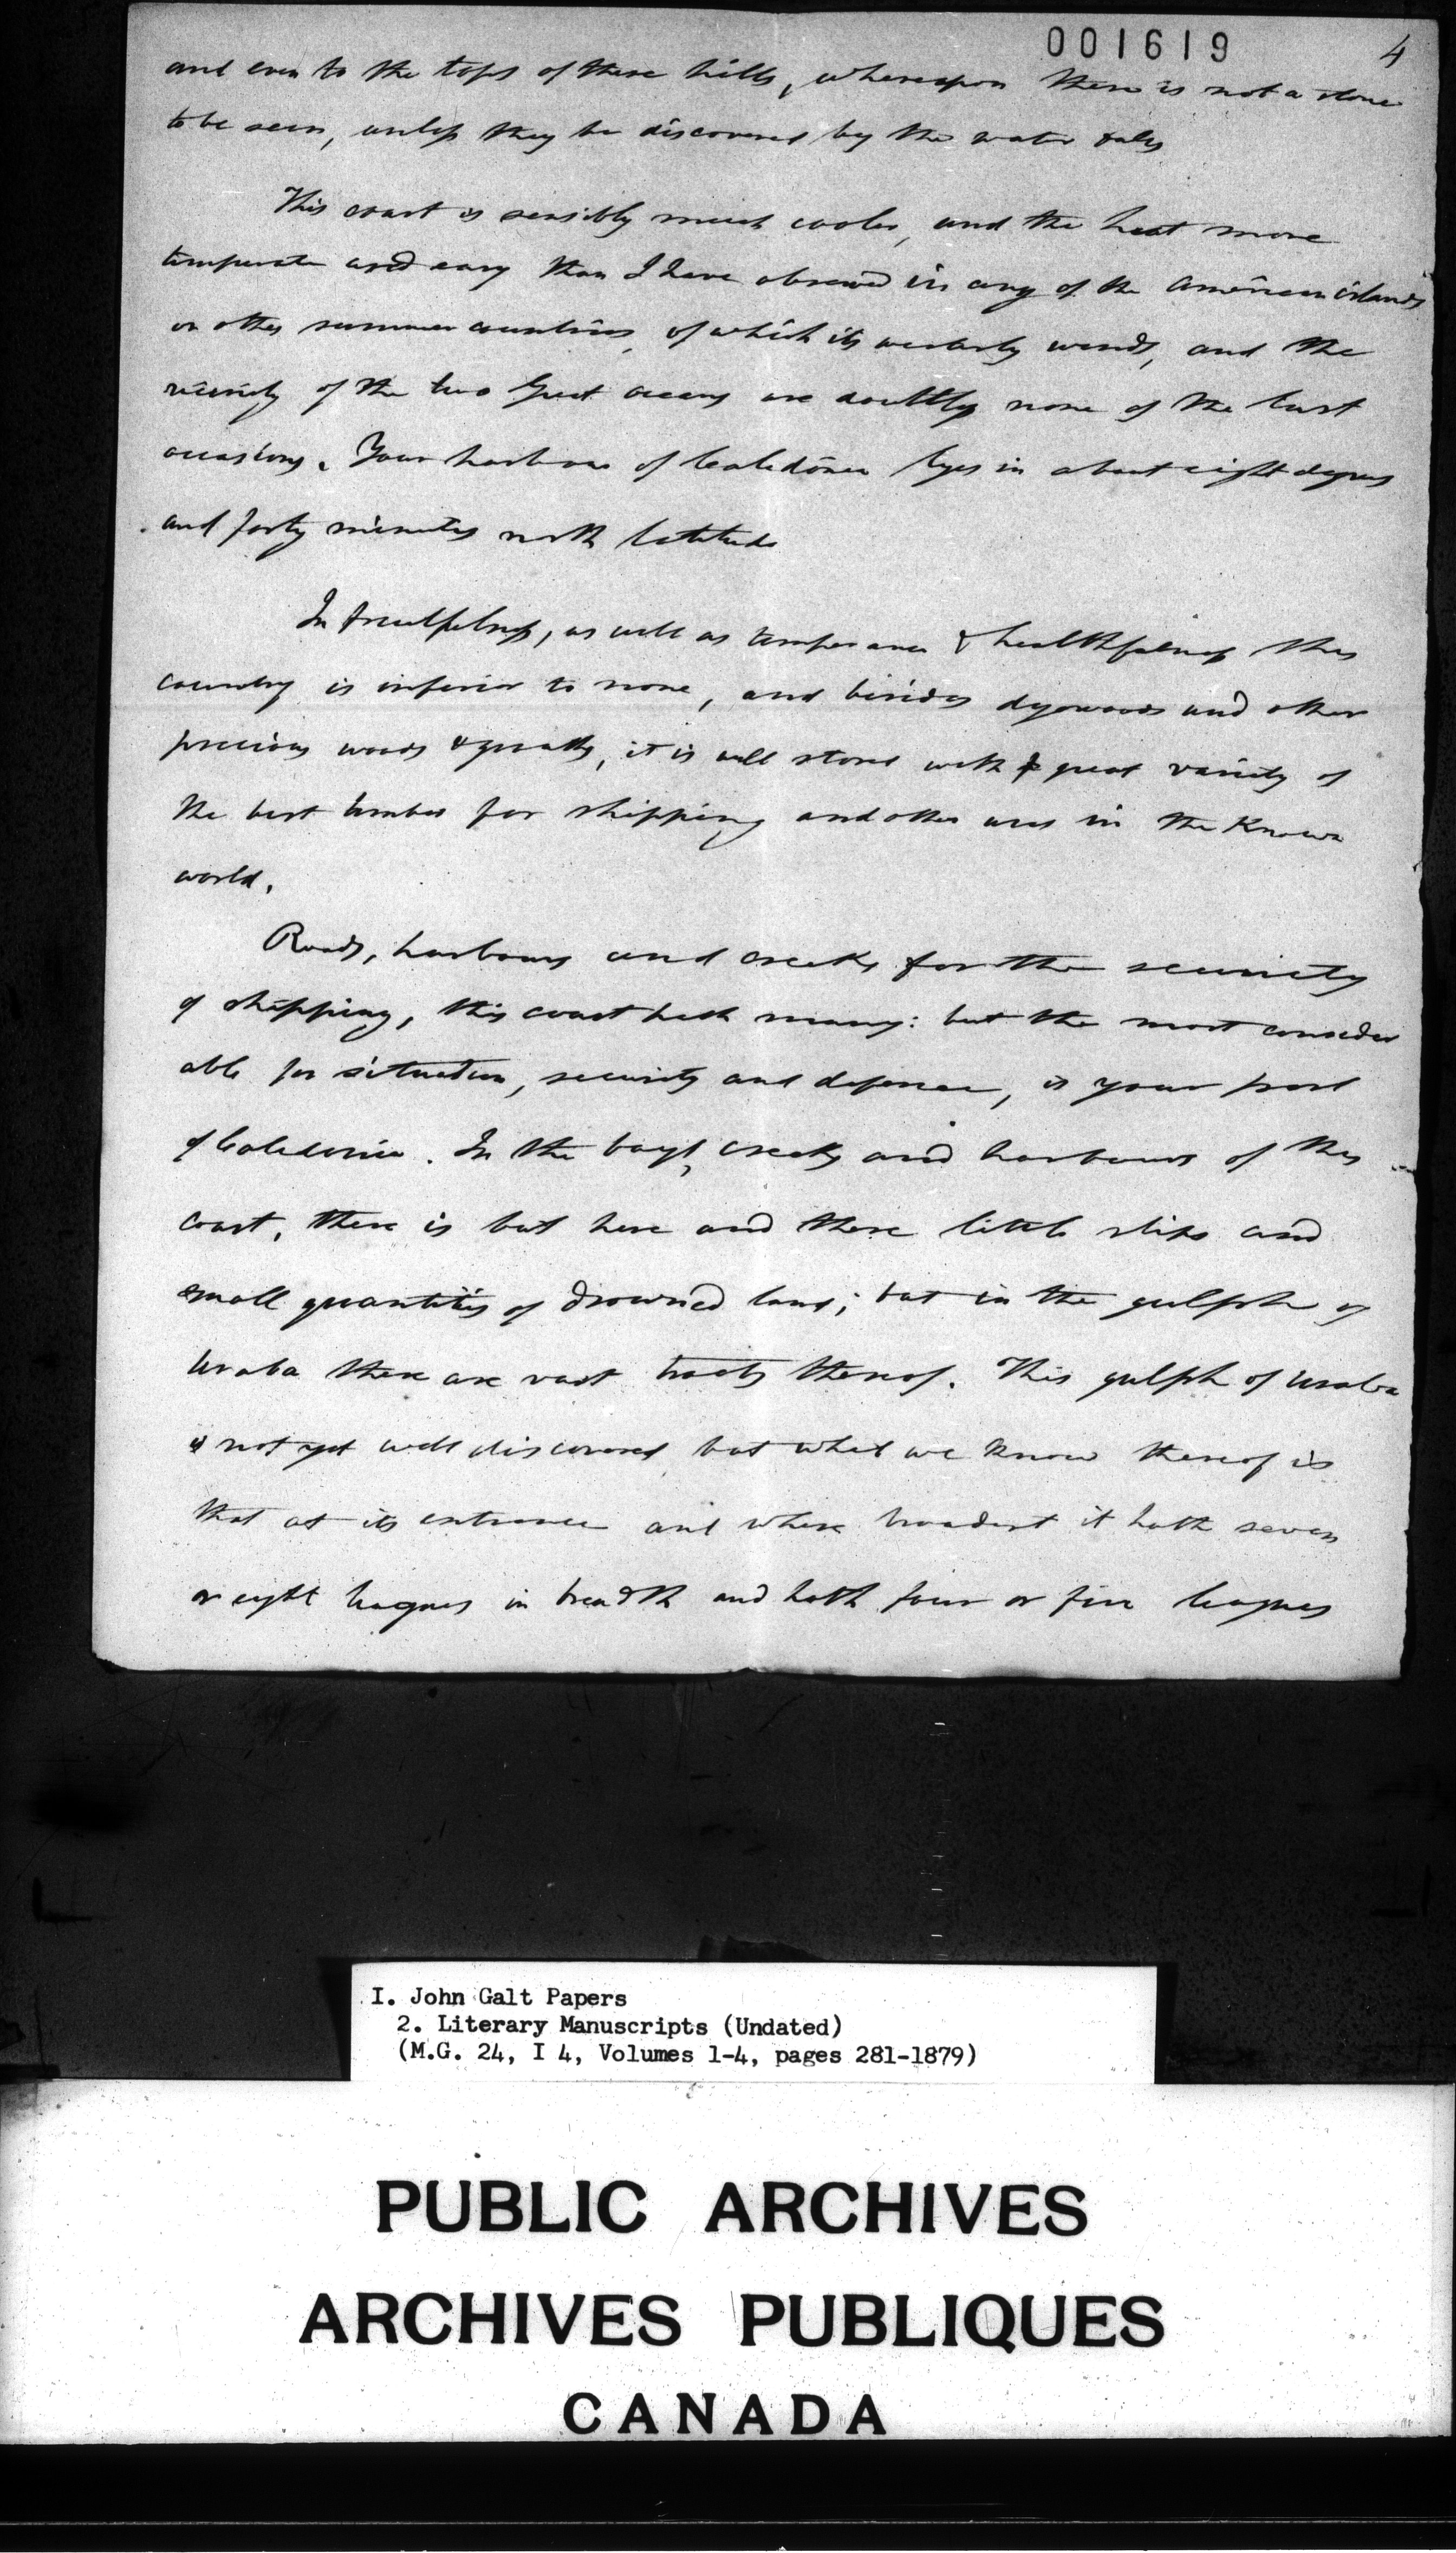 001619 4
and even to the tops of these hills, whereupon there is not a stone
to be seen, unless they be discovered by the water falls
This coast is sensibly much cooler, and the heat more
temperate and easy than I have observed in any of the American islands
or other summer countries, of which its westerly winds, and the
vicinity of the two great oceans are doubtless none of the least
occasions. Your harbour of Caledonia lyes in about eight degrees
and forty minutes north latitude
In fruitfulness, as well as temperance & healthfulness this
country is inferior to none, and besides dyewoods and other
precious woods & it is well stored with great variety of
the best timber for shipping and other uses in the known
world.
Roads, harbours and creeks for the security
of shipping, this coast hath many: but the most consider
able for situation, security and defence, is your port
of Caledonia. In the bays, creeks and harbours of this
coast, there is but here and there little slips and
small quantities of drowned land; but in the gulph of
Uraba there are vast tracts thereof. This gulph of Uraba
is not yet well discovered but what we know thereof is
that at its entrance and where broadest it hath seven
or eight leagues in breadth and hath four or five leagues
I. John Galt Papers
2. Literary Manuscripts (Undated)
(M.G. 24, I 4, Volumes 1-4, pages 281-1879)
PUBLIC ARCHIVES
ARCHIVES PUBLIQUES
CANADA